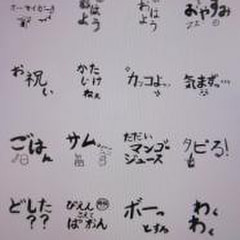 おはよう
おはよう
おやすみ
お祝い
かたじけねぇ
カッコよっ…
気まずっ…
ごはん
サム…
ただいマンゴージュース
タピる!
どした??
ぴえんこえてぱおん
ボーっとすな
わくわく